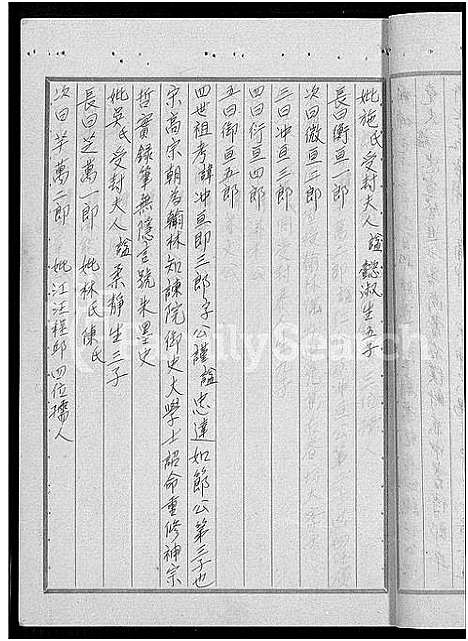 妣施氏受封夫人謚懿淑生五子
長曰衡亘一郎
次曰微亘二郎
三曰冲亘三郎
四曰衍亘四郎
五曰御亘五郎
四世祖考諱冲亘即三郎字公謹謚忠達如節公第三子也
宗高宗朝為翰林知諫院御史大學士詔命重修神宗
哲寶錄筆無隱言號朱墨史
妣吳氏受封夫人謚柔靜生三子
長曰芝萬一郎 妣林氏陳氏
次曰芋萬二郎 妣江汪程邱四位孺人
FamilySearch